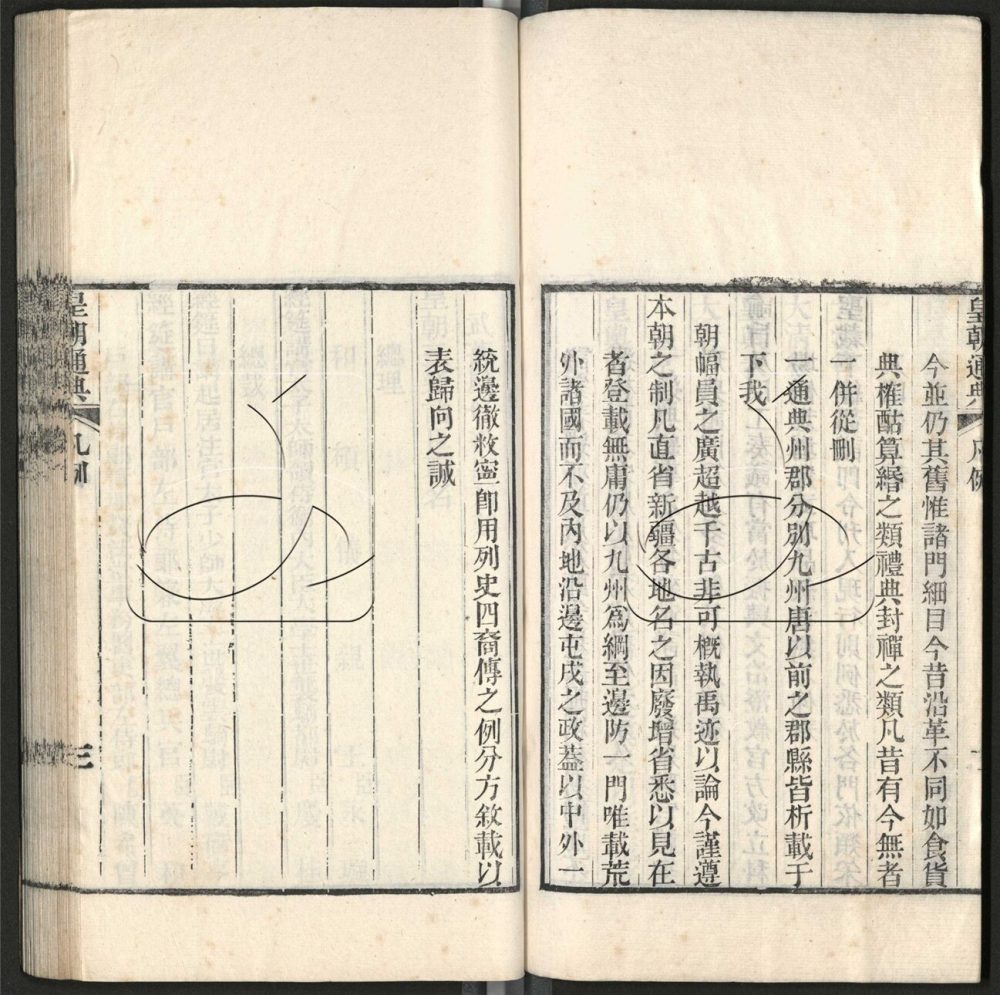 皇朝通典 凡例
今並仍其舊惟諸門細目今昔沿革不同如食貨
典榷酤算緡之類禮典封禪之類凡昔有今無者
一併從刪
一通典州郡分別九州唐以前之郡縣皆析載于
下我
朝幅員之廣超越千古非可概執禹迹以論今謹遵
本朝之制凡直省新疆各地名之因廢增省悉以見在
者登載無庸仍以九州爲綱至邊防一門唯載荒
外諸國而不及內地沿邊屯戍之政蓋以中外一
統邊徼敉寧卽用列史四裔傳之例分方敘載以
表歸向之誠
皇朝通典 凡例 三